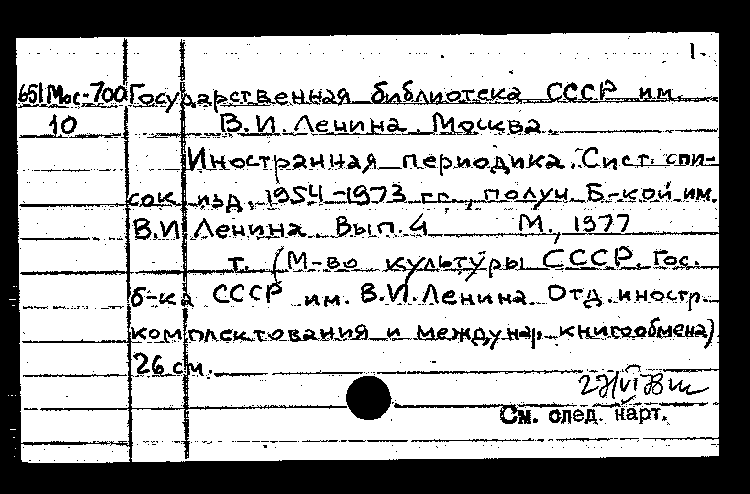 1.
651 Мос-700 Государственная библиотека СССР им.
10 В.И. Ленина. Москва.
Иностранная периодика. Сист. спи-
сок изд. 1954-1973 гг., получ. Б-кой им.
В.И Ленина. Вып. 4 М., 1977
т. (М-во культуры СССР. Гос.
б-ка СССР им. В.И. Ленина. Отд. иностр.
комплектования и междунар. книгообмена)
26 см.
См. след. карт.